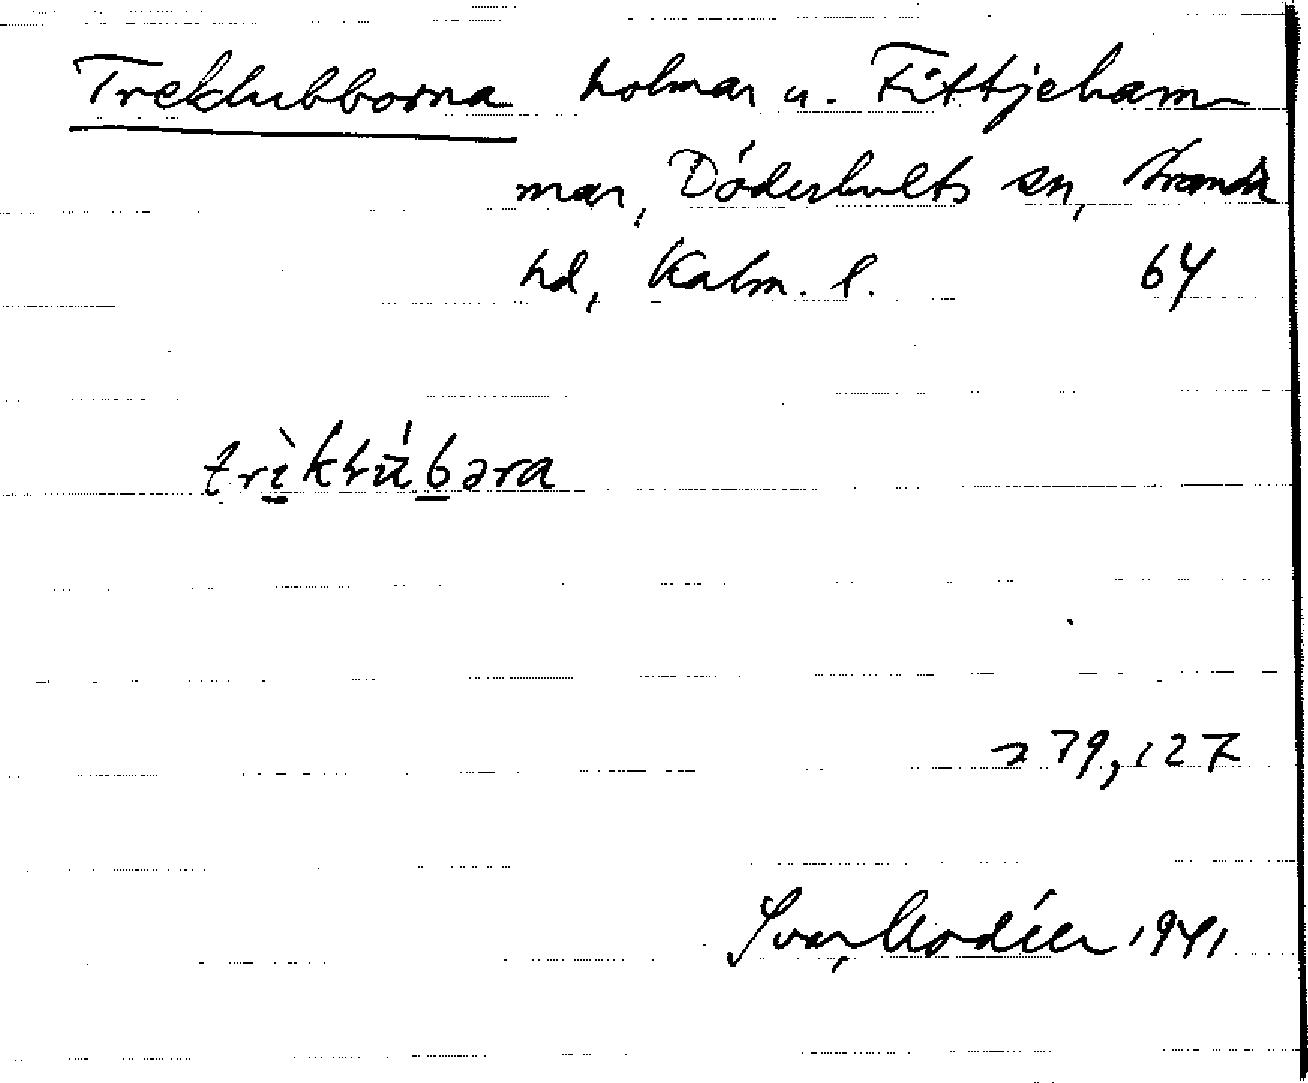 Treklubborna holmar u. Fittjeham-
mar, Döderhults sn, Stranda
hd, Kalm. l. 64
trìkłúbəra
279,127
Ivar Modéer 1941